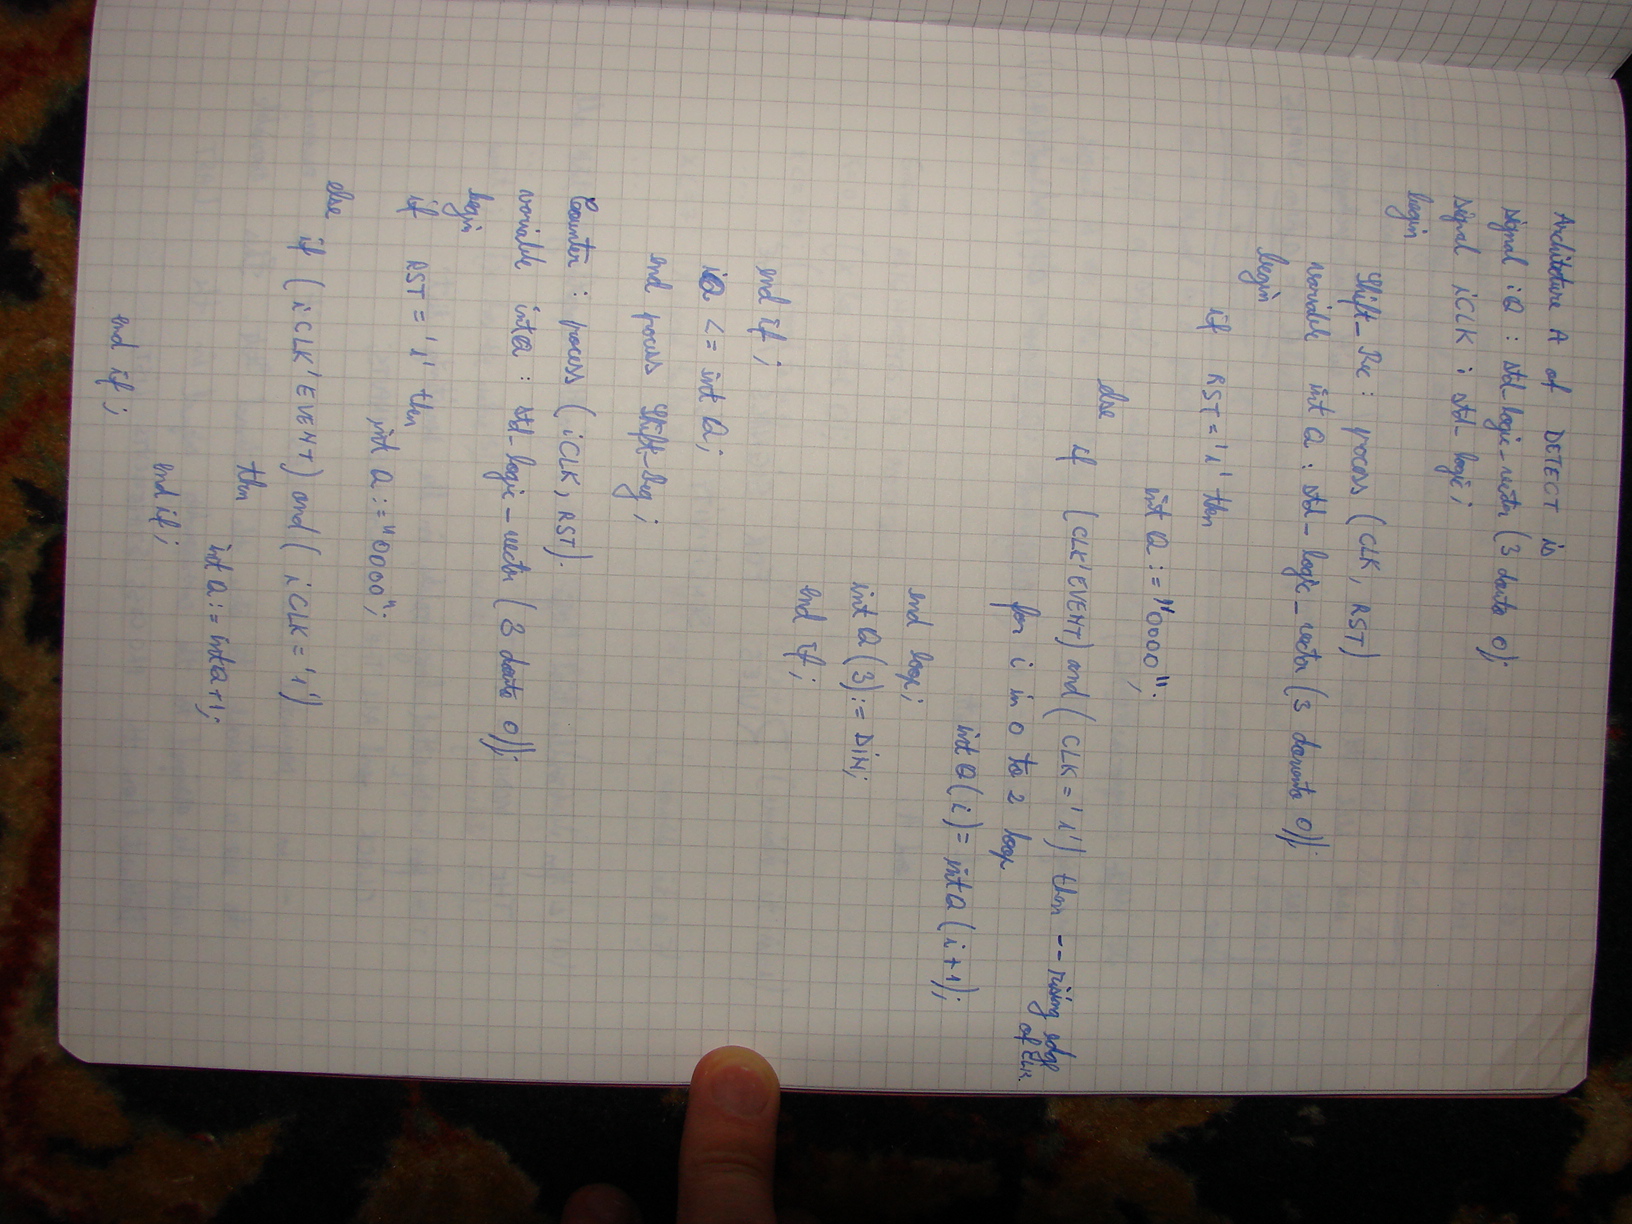 Architecture A of DETECT is
signal iQ : std_logic_vector (3 downto 0);
signal iCLK : std_logic;
begin
Shift_Re : process (CLK, RST)
variable int Q : std_logic_vector (3 downto 0);
begin
if RST = '1' then
int Q := "0000";
else if (CLK'EVENT) and (CLK = '1') then -- rising edge
of CLK.
for i in 0 to 2 loop
int Q (i) = int Q (i+1);
end loop;
int Q (3) := DIN;
end if;
end if;
iQ <= int Q;
end process Shift_Reg;
Counter : process (iCLK, RST).
variable int Q : std_logic_vector (3 downto 0);
begin
if RST = '1' then
int Q := "0000";
else if (iCLK'EVENT) and (iCLK = '1')
then
int Q := int Q + 1;
end if;
end if;